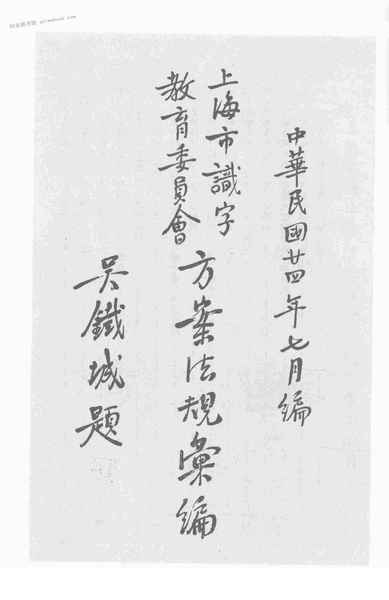 中華民國廿四年七月編
上海市識字
教育委員會
方案法規彙編
吳鐵城題